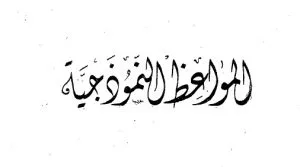 المواعظ النَّموُذَجيَّة